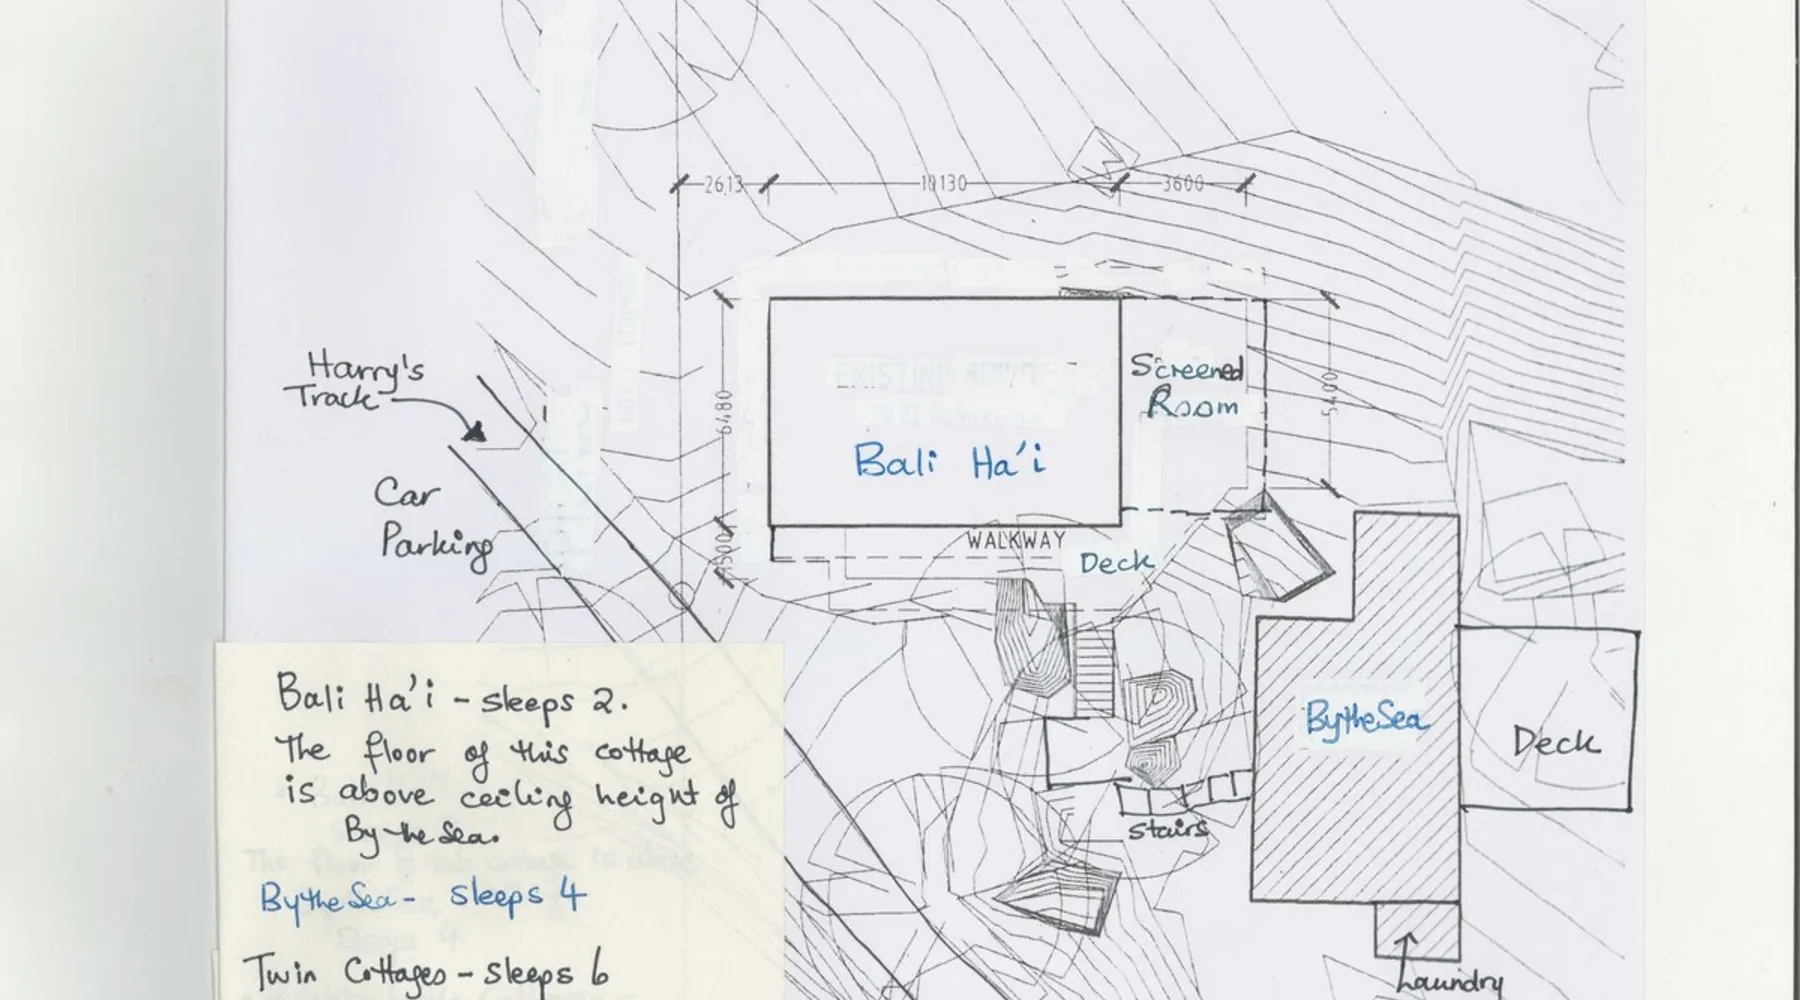 2613
10130
3600
Harry's
Track
Car
Parking
6480
EXISTING
Bali Ha'i
Screened
Room
5400
WALKWAY
Deck
BytheSea
Deck
Stairs
Laundry
Bali Ha'i - sleeps 2.
The floor of this cottage
is above ceiling height of
By the Sea.
BytheSea - sleeps 4
Twin Cottages - sleeps 6